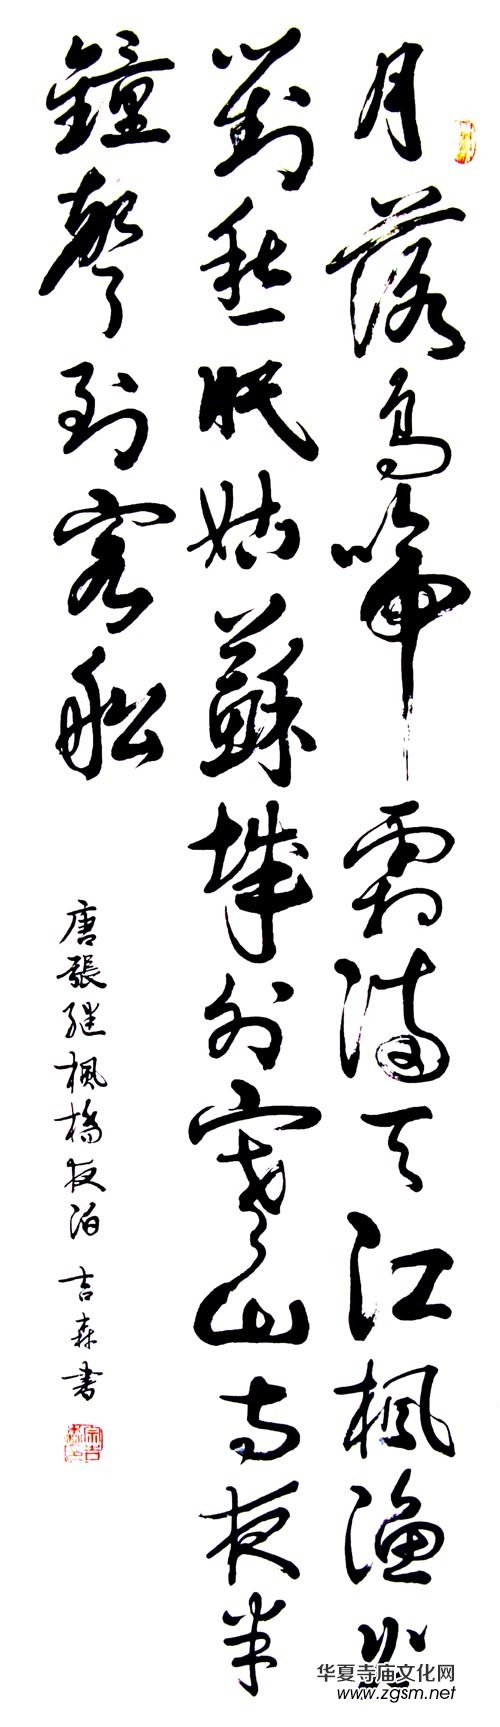 月落烏啼霜满天江楓漁火
對愁眠姑蘇城外寒山寺夜半
鐘聲到客船
唐張继楓橋夜泊 吉森書
华夏寺庙文化网
www.zgsm.net